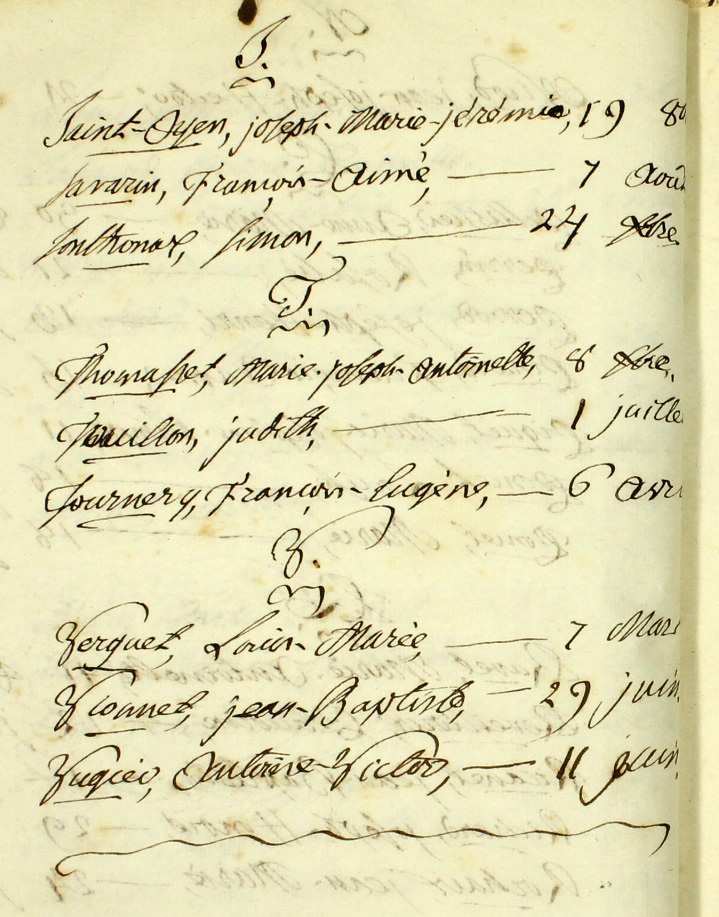 S.
Saint-Oyen, joseph-Marie-jérémie, 19 8b
Savarin, François-Aimé, — 7 Aout
Sonthonax, Simon, — 24 Xbre
T.
Thomasset, Marie-joseph-Antoinette, 8 Xbre,
Touillon, judith, — 1 juille
Tournery, François-Eugène, — 6 Avri
V.
Verguet, Louis-Marie, — 7 Mars
Vionnet, jean-Baptiste, — 29 juin,
Vuguier, Antoine-Victor, — 11 juin,